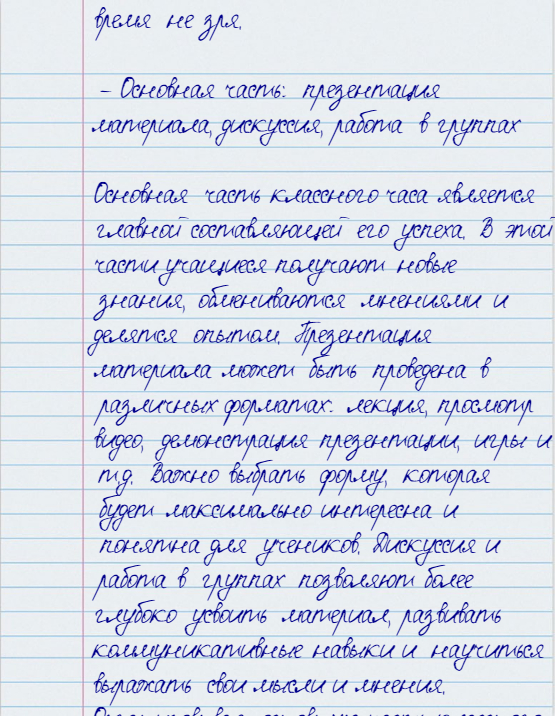 время не зря.
– Основная часть: презентация
материала, дискуссия, работа в группах
Основная часть классного часа является
главной составляющей его успеха. В этой
части учащиеся получают новые
знания, обмениваются мнениями и
делятся опытом. Презентация
материала может быть проведена в
различных форматах: лекция, просмотр
видео, демонстрация презентации, игры и
т.д. Важно выбрать форму, которая
будет максимально интересна и
понятна для учеников. Дискуссия и
работа в группах позволяют более
глубоко усвоить материал, развивать
коммуникативные навыки и научиться
выражать свои мысли и мнения.